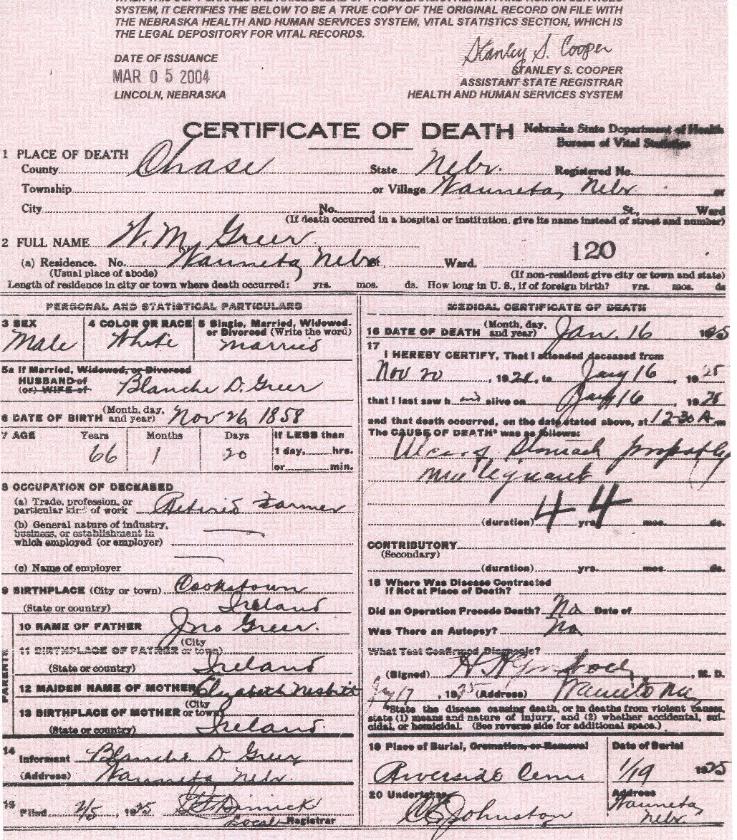 SYSTEM, IT CERTIFIES THE BELOW TO BE A TRUE COPY OF THE ORIGINAL RECORD ON FILE WITH
THE NEBRASKA HEALTH AND HUMAN SERVICES SYSTEM, VITAL STATISTICS SECTION, WHICH IS
THE LEGAL DEPOSITORY FOR VITAL RECORDS.
Stanley S. Cooper
DATE OF ISSUANCE
MAR 05 2004
LINCOLN, NEBRASKA
STANLEY S. COOPER
ASSISTANT STATE REGISTRAR
HEALTH AND HUMAN SERVICES SYSTEM
CERTIFICATE OF DEATH
Nebraska State Department of Health
Bureau of Vital Statistics
1 PLACE OF DEATH
County Chase State Nebr. Registered No.
Township or Village Wauneta, Nebr or
City No. St., Ward
(If death occurred in a hospital or institution, give its name instead of street and number)
2 FULL NAME W. M. Greer
120
(a) Residence. No. Wauneta, Nebr Ward.
(Usual place of abode) (If non-resident give city or town and state)
Length of residence in city or town where death occurred: yrs. mos. ds. How long in U. S., if of foreign birth? yrs. mos. ds
PERSONAL AND STATISTICAL PARTICULARS
3 SEX Male
4 COLOR OR RACE White
5 Single, Married, Widowed, or Divorced (Write the word) married
5a If Married, Widowed, or Divorced
HUSBAND of
(or) WIFE of Blanche D. Greer
6 DATE OF BIRTH (Month, day, and year) Nov 26 1858
7 AGE Years Months Days If LESS than
66 1 20 1 day, hrs.
or min.
8 OCCUPATION OF DECEASED
(a) Trade, profession, or
particular kind of work Retired Farmer
(b) General nature of industry,
business, or establishment in
which employed (or employer)
(c) Name of employer
9 BIRTHPLACE (City or town) Cookstown
(State or country) Ireland
PARENTS
10 NAME OF FATHER Jno Greer.
11 BIRTHPLACE OF FATHER (City or town)
(State or country) Ireland
12 MAIDEN NAME OF MOTHER Elizabeth Nesbitt
13 BIRTHPLACE OF MOTHER (City or town)
(State or country) Ireland
14
Informant Blanche D Greer
(Address) Wauneta Nebr.
15
Filed 2/5, 1925
Local Registrar
MEDICAL CERTIFICATE OF DEATH
16 DATE OF DEATH (Month, day, and year) Jan. 16 1925
17
I HEREBY CERTIFY, That I attended deceased from
Nov 20, 192, to Jany 16 1925
that I last saw h alive on Jany 16 1925
and that death occurred, on the date stated above, at 12-30 A m
The CAUSE OF DEATH* was as follows:
Ulcer of Stomach probably
malignant
44
(duration) yrs. mos. ds.
CONTRIBUTORY
(Secondary)
(duration) yrs. mos. ds.
18 Where Was Disease Contracted
If Not at Place of Death?
Did an Operation Precede Death? No Date of
Was There an Autopsy? No
What Test Confirmed Diagnosis?
(Signed) M. D.
1925 (Address) Wauneta
*State the disease causing death, or in deaths from violent causes,
state (1) means and nature of injury, and (2) whether accidental, sui-
cidal, or homicidal. (See reverse side for additional space.)
19 Place of Burial, Cremation, or Removal
Riverside Cem
Date of Burial
1/19 1925
20 Undertaker
Johnston
Address
Wauneta,
Nebr.